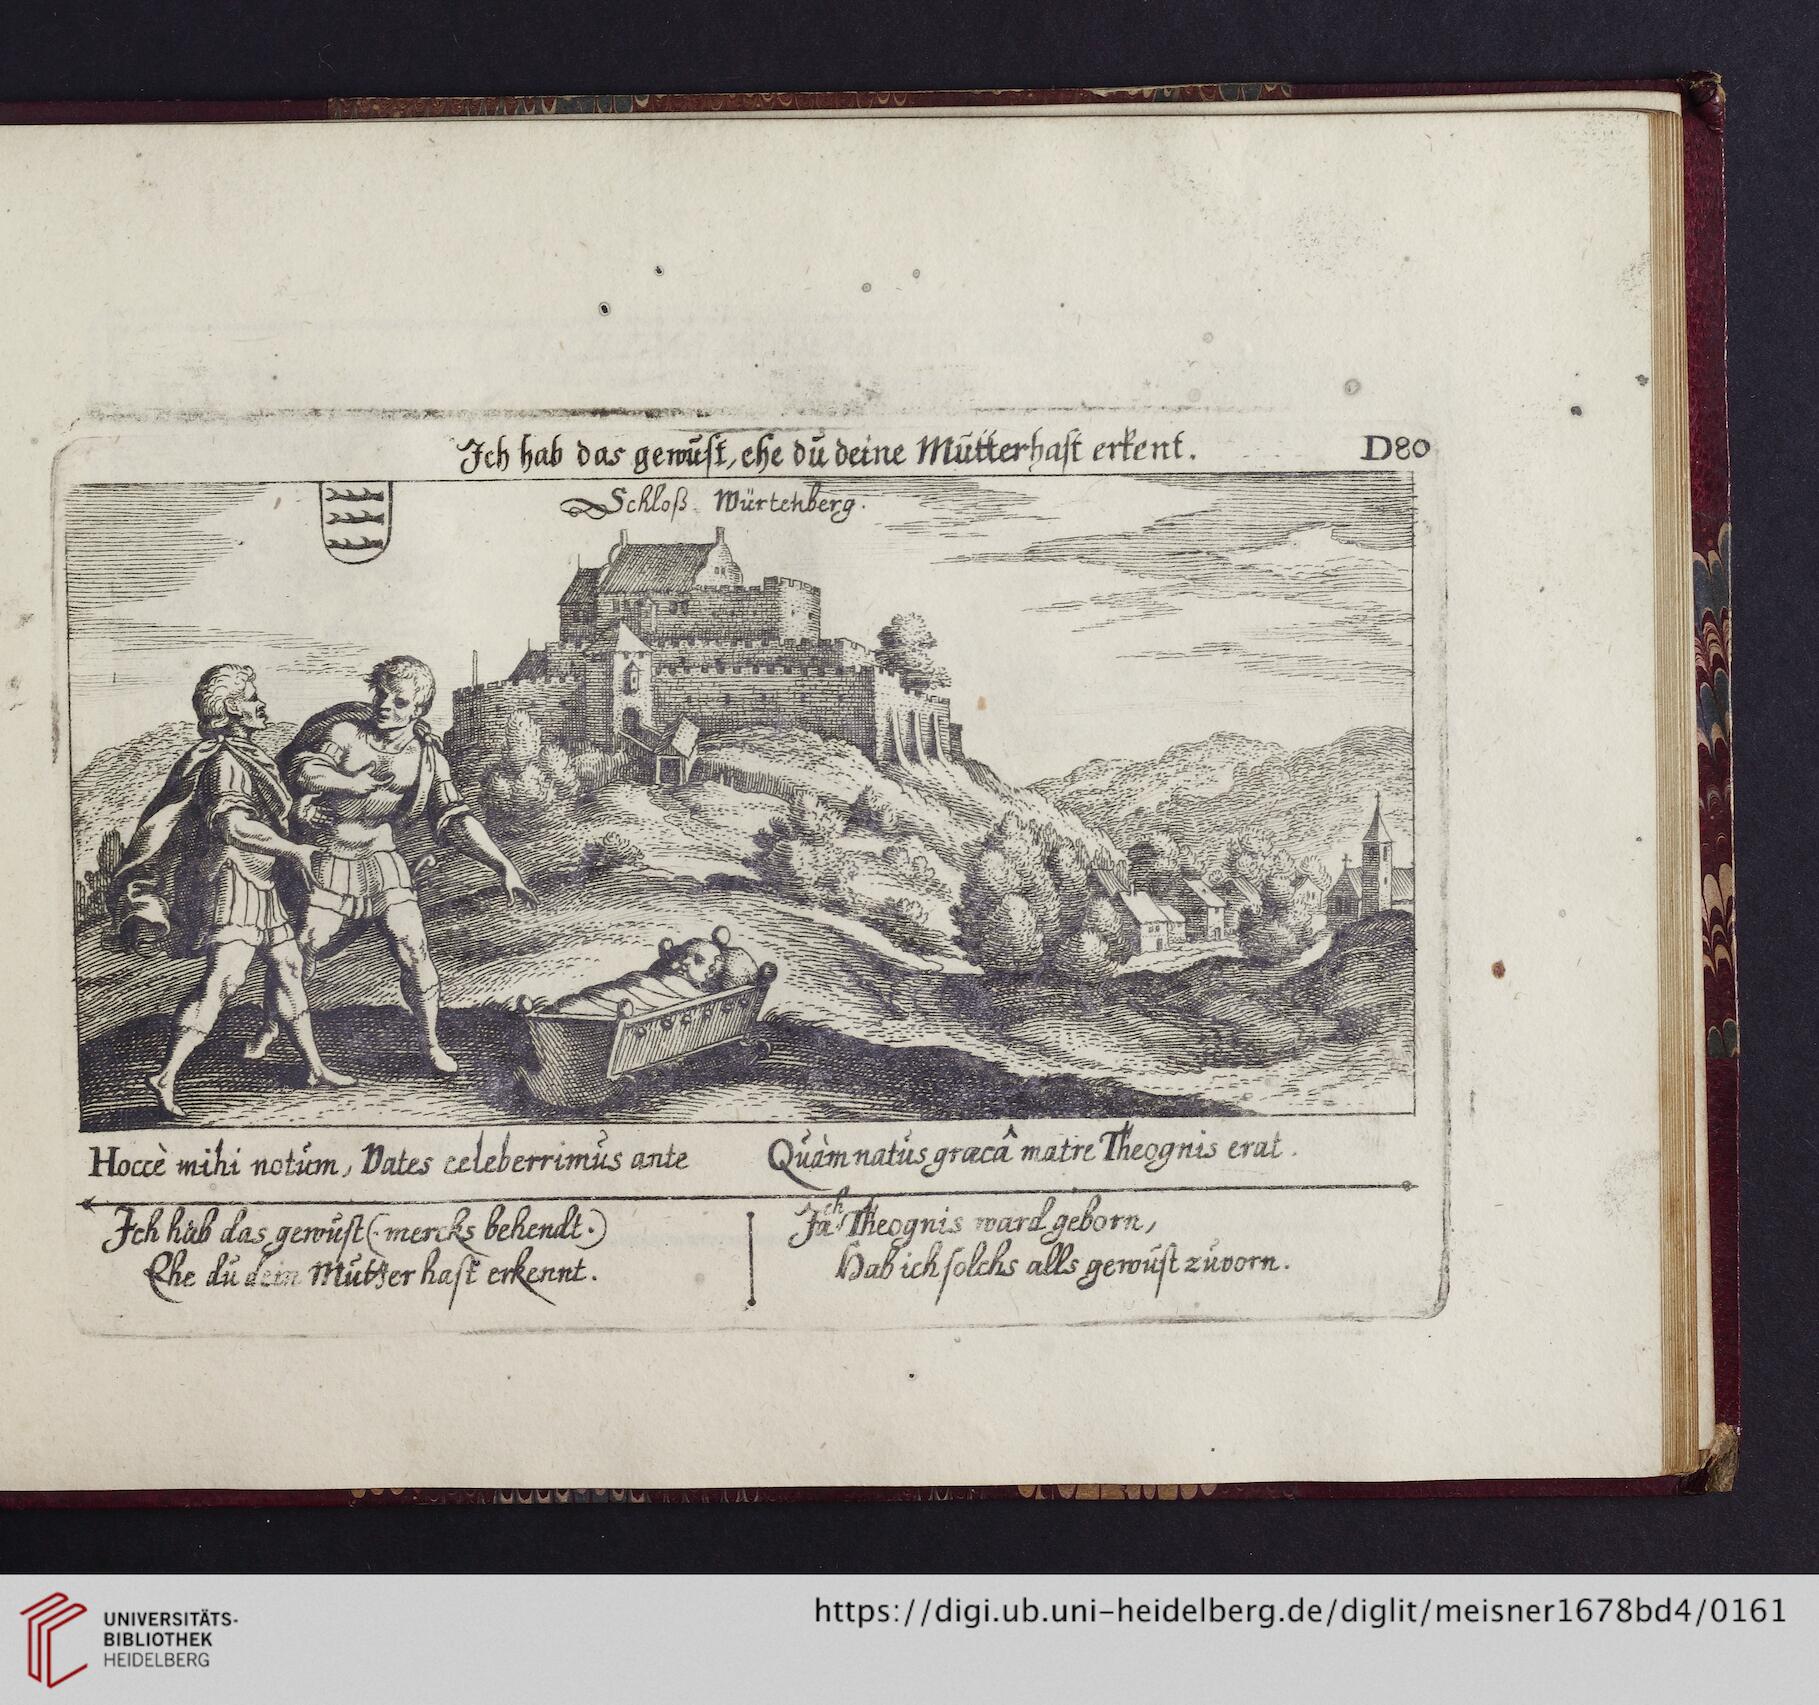 Ich hab das gewust, ehe du deine Mutter hast erkent.
D80
Schloß Würtenberg.
Hoccè mihi notum, Vates celeberrimus ante
Quàm natus græcâ matre Theognis erat.
Ich hab das gewust (mercks behendt.)
Ehe du dein Mutter hast erkennt.
Ja ch Theognis ward geborn,
Hab ich solchs alls gewust zuvorn.
UNIVERSITÄTS-
BIBLIOTHEK
HEIDELBERG
https://digi.ub.uni-heidelberg.de/diglit/meisner1678bd4/0161